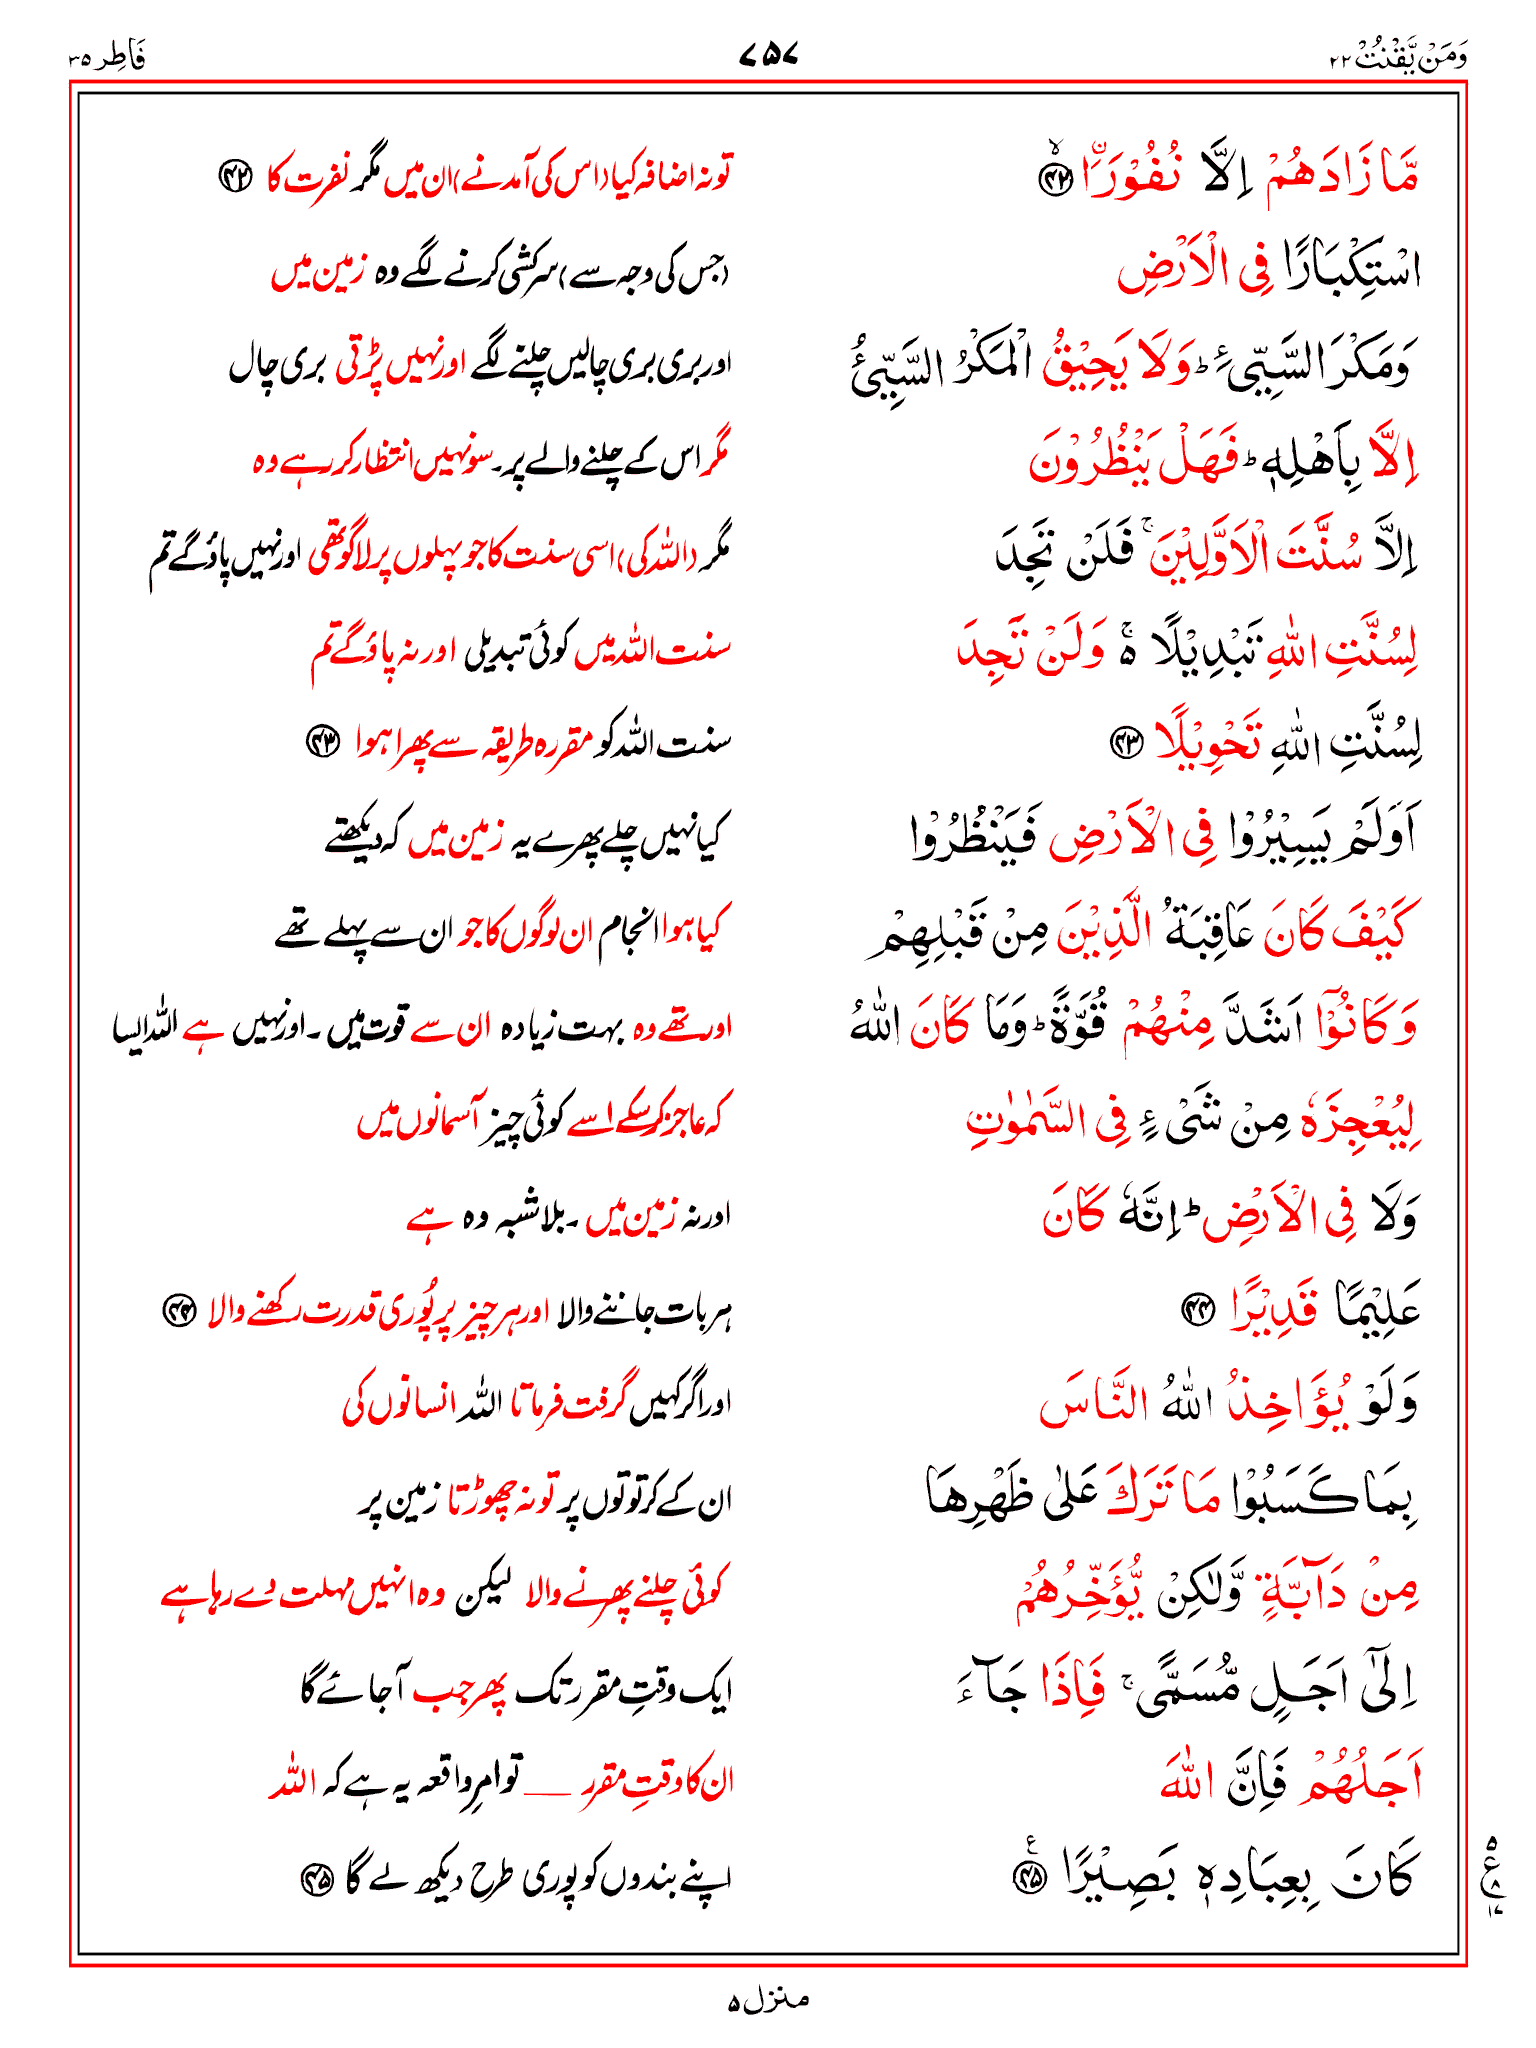 وَمَنْ يَّقْنُتْ ٢٢
٧٥٧
فَاطِر ٣٥
مَّا زَادَهُمْ اِلَّا نُفُوْرَاۨ ۙ‏﴿۴۲﴾
تو نہ اضافہ کیا (اس کی آمد نے) ان میں مگر نفرت کا ﴿۴۲﴾
اسْتِكْبَارًا فِى الْاَرْضِ
(جس کی وجہ سے) سرکشی کرنے لگے وہ زمین میں
وَمَكْرَ السَّيِّیٴِ ؕ وَلَا يَحِيْقُ الْمَكْرُ السَّيِّیٴُ
اور بری بری چالیں چلنے لگے اور نہیں پڑتی بری چال
اِلَّا بِاَهْلِهٖ ؕ فَهَلْ يَنْظُرُوْنَ
مگر اس کے چلنے والے پر۔ سو نہیں انتظار کر رہے وہ
اِلَّا سُنَّتَ الْاَوَّلِيْنَ ۚ فَلَنْ تَجِدَ
مگر (اللہ کی) اسی سنت کا جو پہلوں پر لاگو تھی اور نہیں پاؤ گے تم
لِسُنَّتِ اللّٰهِ تَبْدِيْلًا ۵ۚ وَلَنْ تَجِدَ
سنت اللہ میں کوئی تبدیلی اور نہ پاؤ گے تم
لِسُنَّتِ اللّٰهِ تَحْوِيْلًا ﴿۴۳﴾
سنت اللہ کو مقررہ طریقہ سے پھرا ہوا ﴿۴۳﴾
اَوَلَمْ يَسِيْرُوْا فِى الْاَرْضِ فَيَنْظُرُوْا
کیا نہیں چلے پھرے یہ زمین میں کہ دیکھتے
كَيْفَ كَانَ عَاقِبَةُ الَّذِيْنَ مِنْ قَبْلِهِمْ
کیا ہوا انجام ان لوگوں کا جو ان سے پہلے تھے
وَكَانُوْۤا اَشَدَّ مِنْهُمْ قُوَّةً ؕ وَمَا كَانَ اللّٰهُ
اور تھے وہ بہت زیادہ ان سے قوت میں۔ اور نہیں ہے اللہ ایسا
لِيُعْجِزَهٗ مِنْ شَىْءٍ فِى السَّمٰوٰتِ
کہ عاجز کر سکے اسے کوئی چیز آسمانوں میں
وَلَا فِى الْاَرْضِ ؕ اِنَّهٗ كَانَ
اور نہ زمین میں۔ بلاشبہ وہ ہے
عَلِيْمًا قَدِيْرًا ﴿۴۴﴾
ہر بات جاننے والا اور ہر چیز پر پُوری قدرت رکھنے والا ﴿۴۴﴾
وَلَوْ يُؤَاخِذُ اللّٰهُ النَّاسَ
اور اگر کہیں گرفت فرماتا اللہ انسانوں کی
بِمَا كَسَبُوْا مَا تَرَكَ عَلٰى ظَهْرِهَا
ان کے کرتوتوں پر تو نہ چھوڑتا زمین پر
مِنْ دَآبَّةٍ وَّلٰكِنْ يُّؤَخِّرُهُمْ
کوئی چلنے پھرنے والا لیکن وہ انہیں مہلت دے رہا ہے
اِلٰٓى اَجَلٍ مُّسَمًّى ۚ فَاِذَا جَآءَ
ایک وقتِ مقرر تک پھر جب آ جائے گا
اَجَلُهُمْ فَاِنَّ اللّٰهَ
ان کا وقتِ مقرر __ تو امرِ واقعہ یہ ہے کہ اللہ
كَانَ بِعِبَادِهٖ بَصِيْرًا ﴿۴۵﴾ ع
اپنے بندوں کو پوری طرح دیکھ لے گا ﴿۴۵﴾
۵
ع
۸
۱۷
منزل ۵